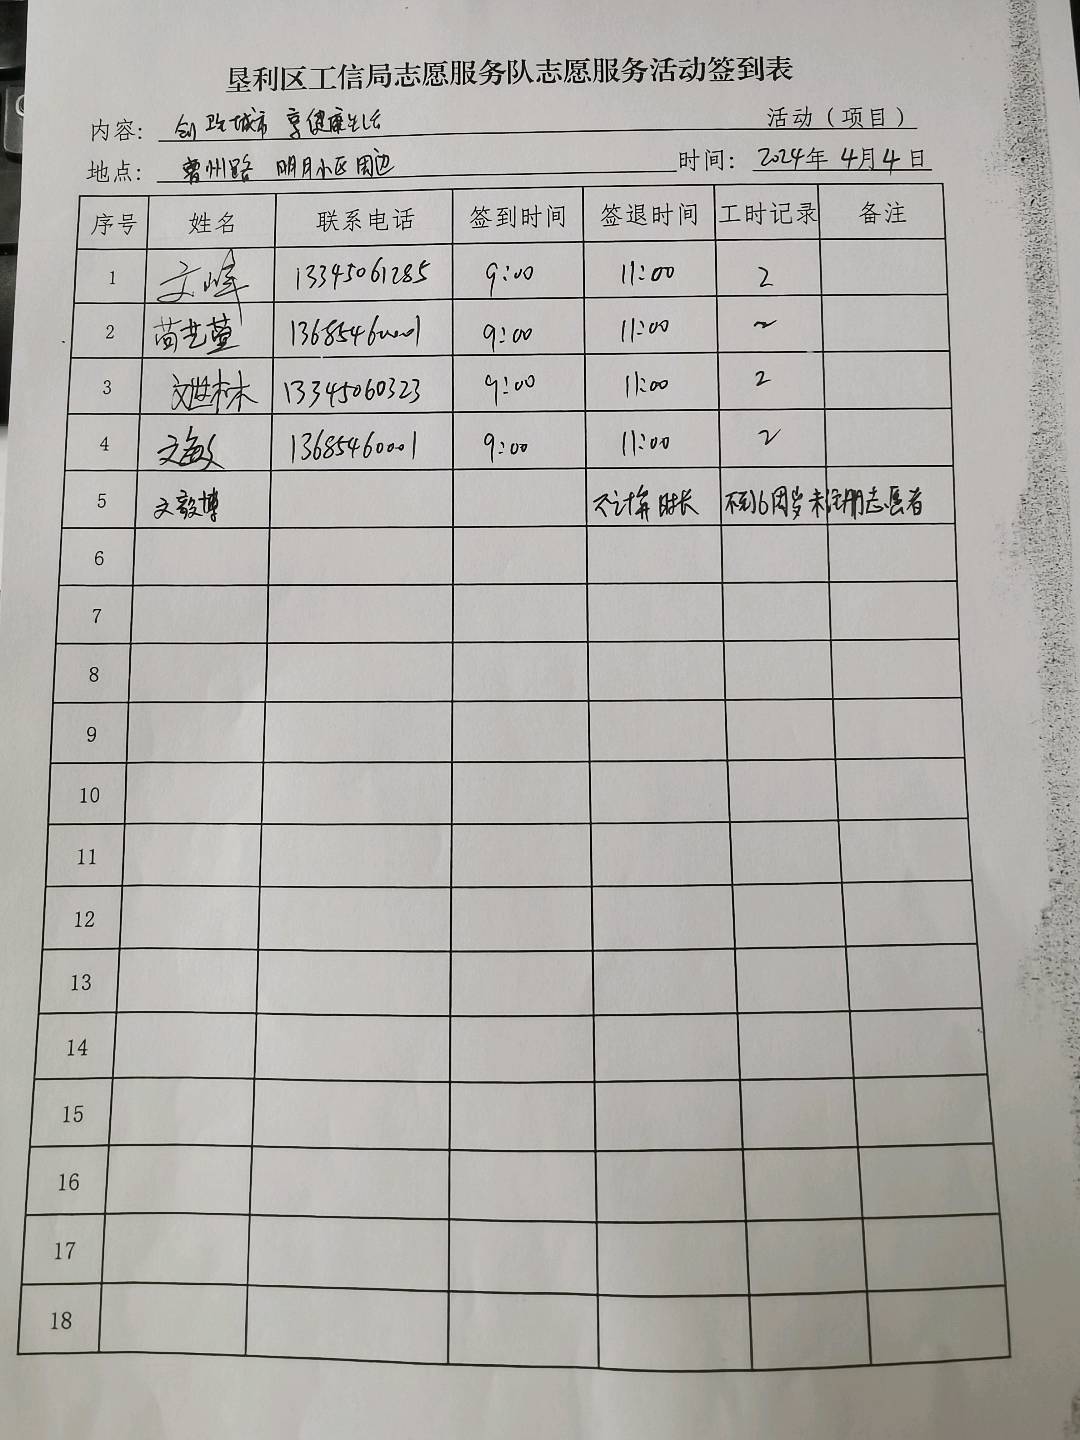 垦利区工信局志愿服务队志愿服务活动签到表
内容: 创卫生城市 享健康生活 活动（项目）
地点: 曹州路 明月小区周边 时间: 2024年 4月4日
序号 姓名 联系电话 签到时间 签退时间 工时记录 备注
1 文峰 13345061285 9:00 11:00 2
2 苗艺萱 13685460001 9:00 11:00 2
3 文世林 13345060323 9:00 11:00 2
4 文敏 13685460001 9:00 11:00 2
5 文毅博 不计算时长 不到6周岁未注册志愿者
6
7
8
9
10
11
12
13
14
15
16
17
18